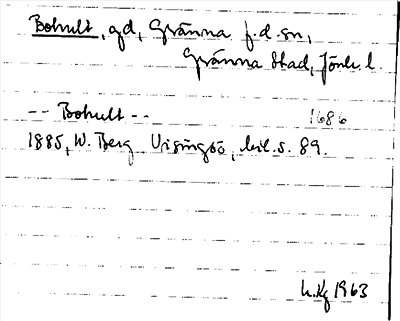 Bohult, gd, Gränna f.d. sn,
Gränna Stad, Jönk. l.
-- Bohult -- 1686
1885, W. Berg Visingsö, bil. s. 89.
1963